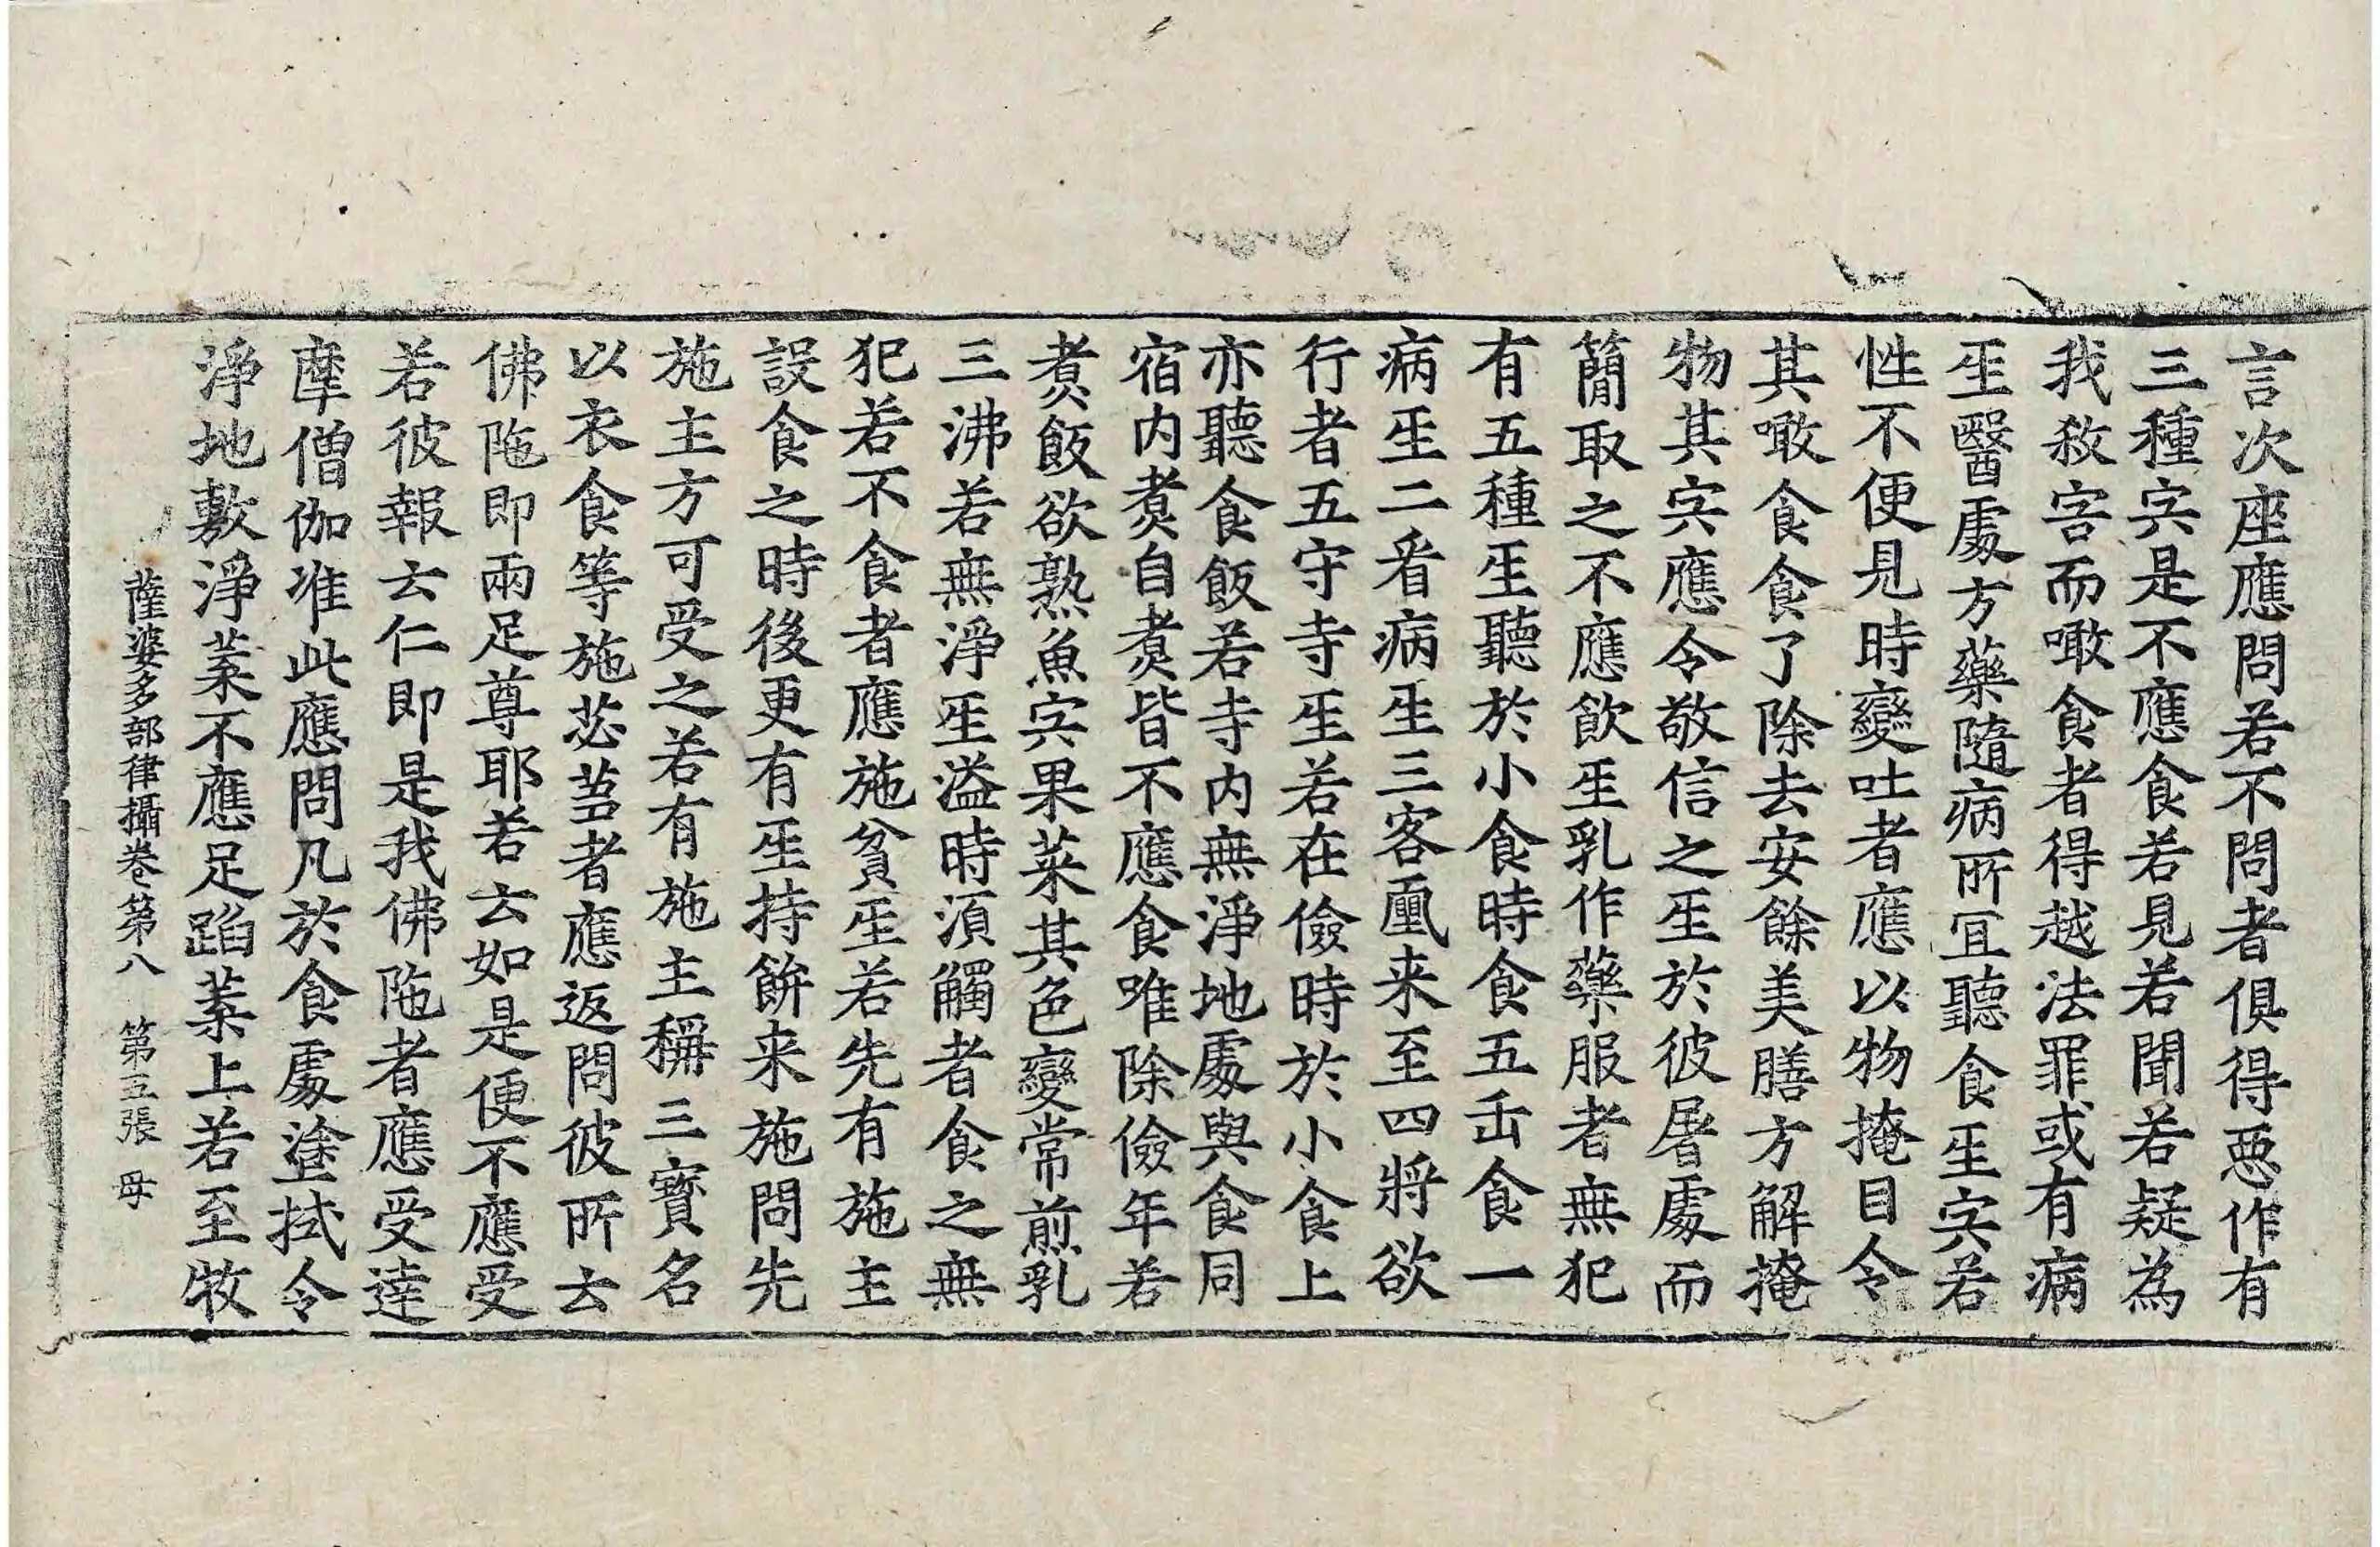 言次座應問若不問者俱得悪作有
三種宍是不應食若見若聞若疑為
我煞害而噉食者得越法罪或有病
𤯔醫處方藥隨病所冝聽食𤯔宍若
性不便見時變吐者應以物掩目令
其噉食食了除去安餘美膳方解掩
物其宍應令敬信之𤯔於彼屠處而
簡取之不應飲𤯔乳作藥服者無犯
有五種𤯔聽於小食時食五𠙺食一
病𤯔二看病生三客来至四將欲
行者五守寺𤯔若在儉時於小食上
亦聽食飯若寺内無淨地處與食同
宿内煑自煑皆不應食唯除儉年若
煑飯欲熟魚宍果菜其色變常煎乳
三沸若無淨𤯔溢時湏觸者食之無
犯若不食者應施貧𤯔若先有施主
誤食之時後更有𤯔持餅来施問先
施主方可受之若有施主稱三寳名
以衣食等施苾蒭者應返問彼所云
佛陁即兩足尊耶若云如是便不應受
若彼報云仁即是我佛陁者應受達
摩僧伽准此應問凡於食處塗拭令
淨地敷淨葉不應足蹈葉上若至牧
薩婆多部律攝卷第八　第五張　母